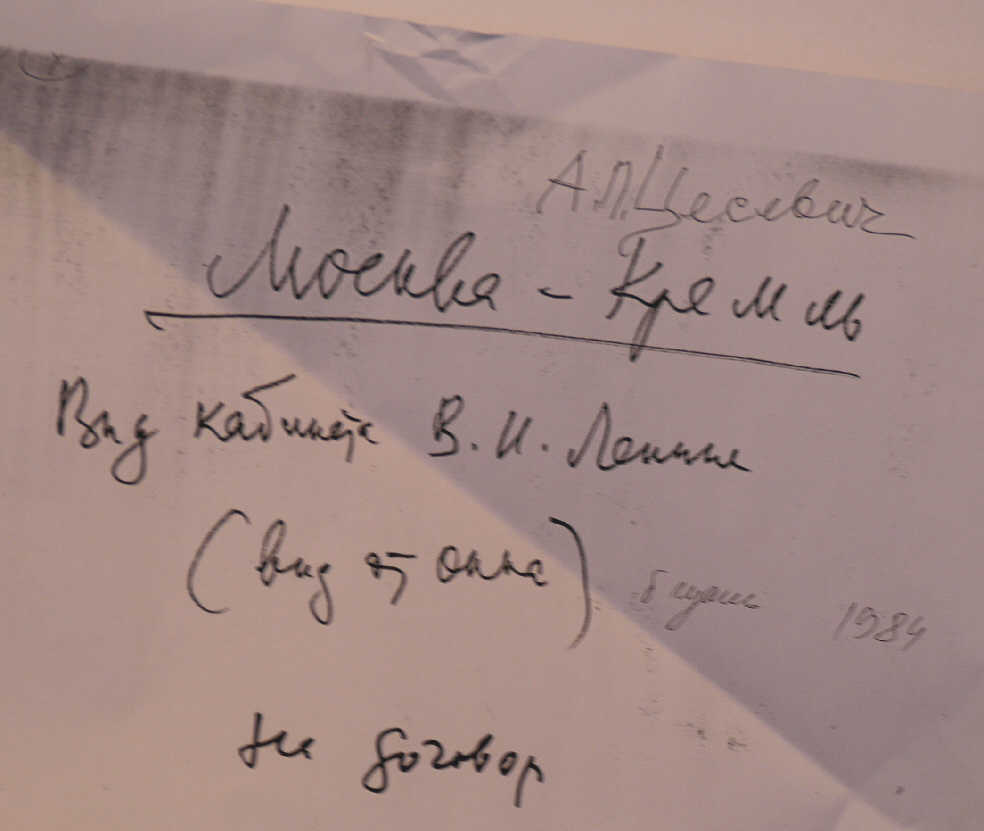 А.П. Цесевич
Москва - Кремль
Вид кабинета В. И. Ленина
(вид от окна)
1984
На договор